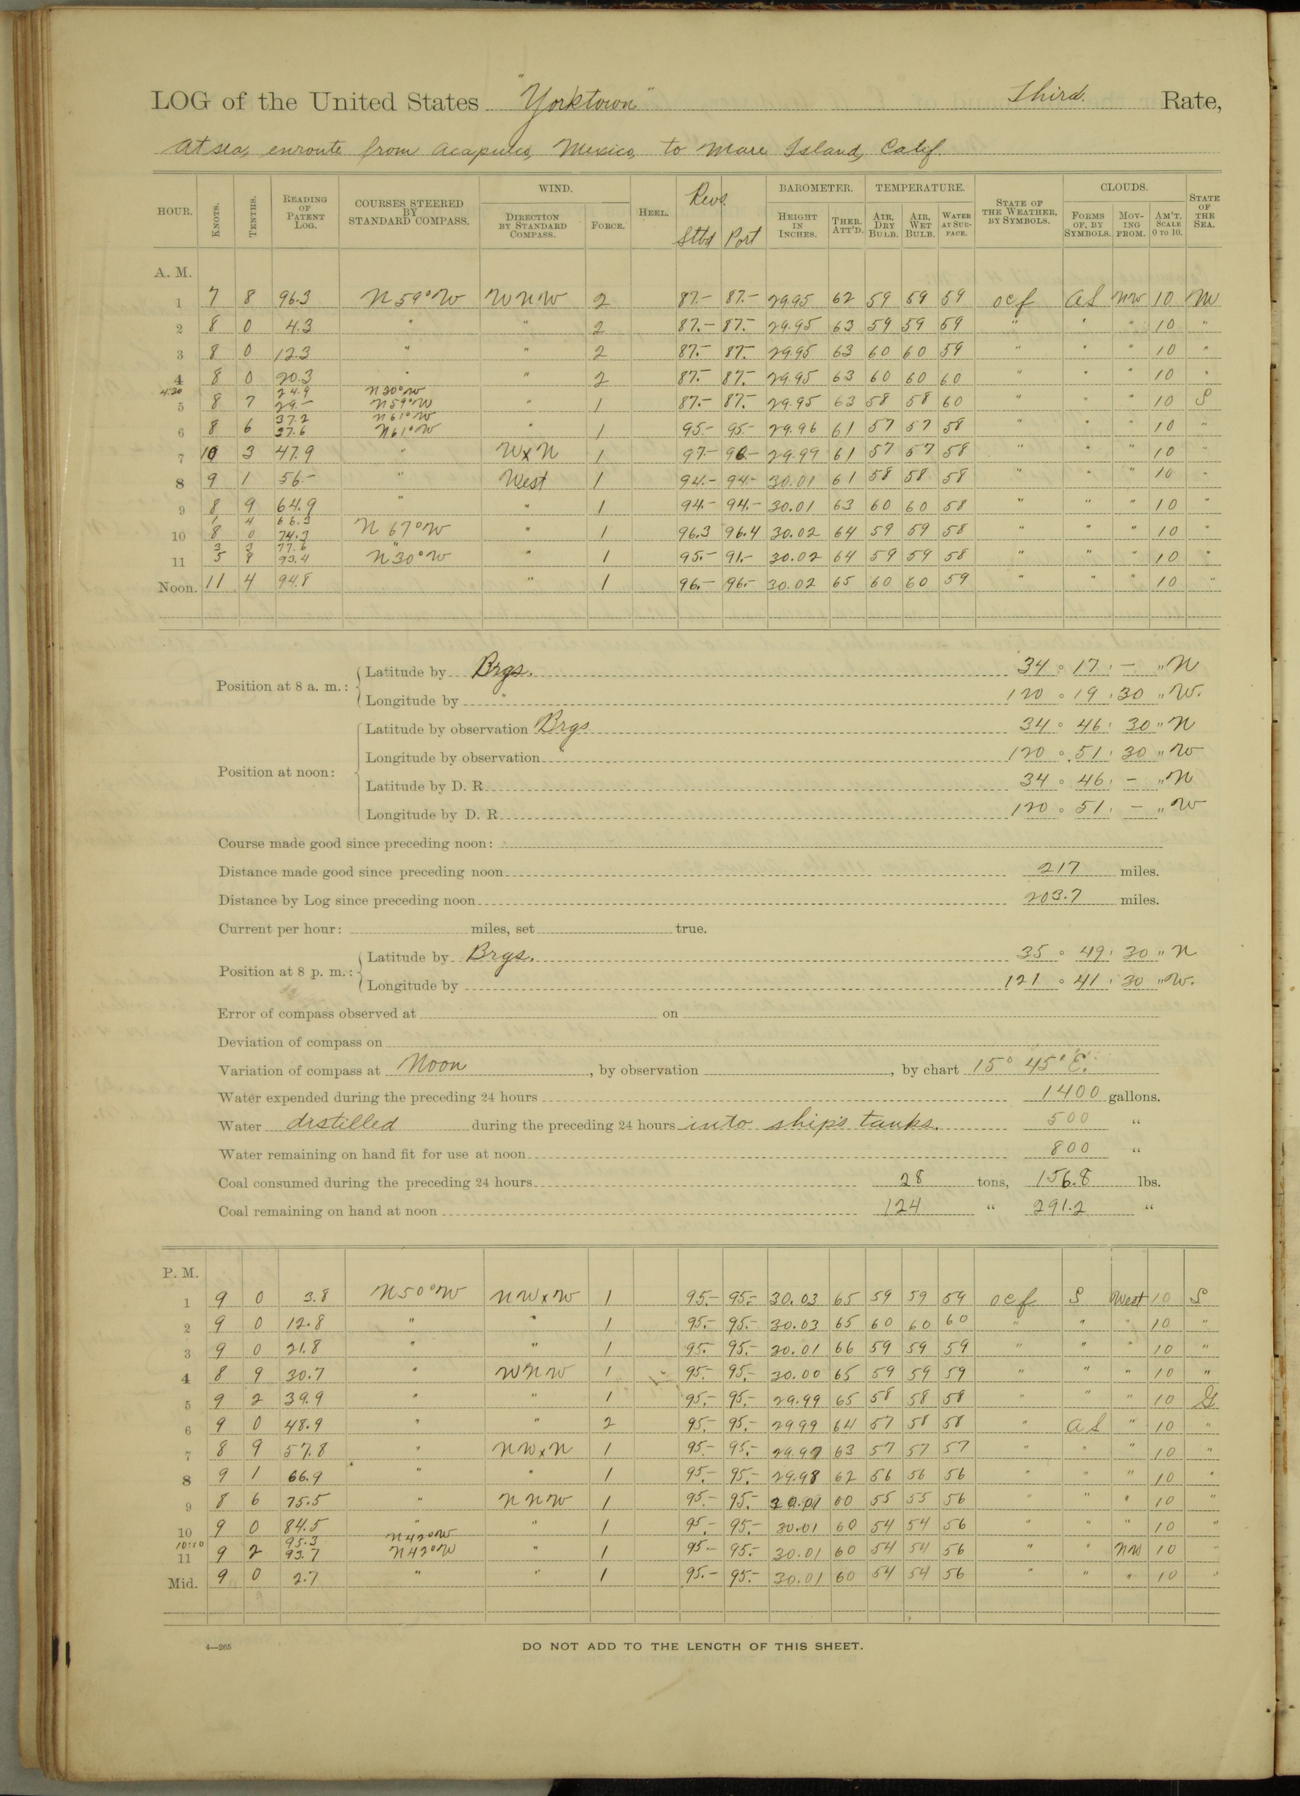 LOG of the United States "Yorktown" Third Rate,
At sea, enroute from Acapulco, Mexico, to Mare Island, Calif.
HOUR. KNOTS. TENTHS. READING OF PATENT LOG. COURSES STEERED BY STANDARD COMPASS. WIND. DIRECTION BY STANDARD COMPASS. FORCE. HEEL. Revs. Stbd Port BAROMETER. HEIGHT IN INCHES. THER. ATT'D. TEMPERATURE. AIR, DRY BULB. AIR, WET BULB. WATER AT SURFACE. STATE OF THE WEATHER, BY SYMBOLS. CLOUDS. FORMS OF, BY SYMBOLS. MOVING FROM. AM'T. SCALE 0 TO 10. STATE OF THE SEA.
A. M.
1 7 8 96.3 N 59° W WNW 2 87.- 87.- 29.95 62 59 59 59 ocf AS NW 10 M
2 8 0 4.3 " " 2 87.- 87.- 29.95 63 59 59 59 " " " 10 "
3 8 0 12.3 " " 2 87.- 87.- 29.95 63 60 60 59 " " " 10 "
4 8 0 20.3 " " 2 87.- 87.- 29.95 63 60 60 60 " " " 10 "
4.20 24.9 N 30° W
5 8 7 29.- N 59° W " 1 87.- 87.- 29.95 63 58 58 60 " " " 10 S
37.2 N 61° W
6 8 6 37.6 N 61° W " 1 95.- 95.- 29.96 61 57 57 58 " " " 10 "
7 10 3 47.9 " WxN 1 97.- 96.- 29.99 61 57 57 58 " " " 10 "
8 9 1 56.- " West 1 94.- 94.- 30.01 61 58 58 58 " " " 10 "
9 8 9 64.9 " " 1 94.- 94.- 30.01 63 60 60 58 " " " 10 "
1 4 66.3
10 8 0 74.3 N 67° W " 1 96.3 96.4 30.02 64 59 59 58 " " " 10 "
3 3 77.6 "
11 5 8 83.4 N 30° W " 1 95.- 91.- 30.02 64 59 59 58 " " " 10 "
Noon. 11 4 94.8 " 1 96.- 96.- 30.02 65 60 60 59 " " " 10 "
Position at 8 a. m.: Latitude by Brgs. 34 ° 17 ' - " N
Longitude by " 120 ° 19 ' 30 " W.
Position at noon: Latitude by observation Brgs 34 ° 46 ' 30 " N
Longitude by observation 120 ° 51 ' 30 " W
Latitude by D. R. 34 ° 46 ' - " N
Longitude by D. R. 120 ° 51 ' - " W
Course made good since preceding noon:
Distance made good since preceding noon 217 miles.
Distance by Log since preceding noon 203.7 miles.
Current per hour: miles, set true.
Position at 8 p. m.: Latitude by Brgs. 35 ° 49 ' 30 " N
Longitude by 121 ° 41 ' 30 " W.
Error of compass observed at on
Deviation of compass on
Variation of compass at Noon, by observation, by chart 15° 45' E.
Water expended during the preceding 24 hours 1400 gallons.
Water distilled during the preceding 24 hours into ship's tanks. 500 "
Water remaining on hand fit for use at noon 800 "
Coal consumed during the preceding 24 hours 28 tons, 156.8 lbs.
Coal remaining on hand at noon 124 " 291.2 "
P. M.
1 9 0 3.8 N 50° W NWxW 1 95.- 95.- 30.03 65 59 59 59 ocf S West 10 S
2 9 0 12.8 " " 1 95.- 95.- 30.03 65 60 60 60 " " " 10 "
3 9 0 21.8 " " 1 95. 95.- 30.01 66 59 59 59 " " " 10 "
4 8 9 30.7 " WNW 1 95.- 95.- 30.00 65 59 59 59 " " " 10 "
5 9 2 39.9 " " 1 95.- 95.- 29.99 65 58 58 58 " " " 10 G
6 9 0 48.9 " " 2 95.- 95.- 29.99 64 57 58 58 " AS " 10 "
7 8 9 57.8 " NWxN 1 95.- 95.- 29.99 63 57 57 57 " " " 10 "
8 9 1 66.9 " " 1 95.- 95.- 29.98 62 56 56 56 " " " 10 "
9 8 6 75.5 " NNW 1 95.- 95.- 30.01 60 55 55 56 " " " 10 "
10 9 0 84.5 " " 1 95.- 95.- 30.01 60 54 54 56 " " " 10 "
10:10 N 42° W
11 9 2 93.7 N 42° W " 1 95.- 95.- 30.01 60 54 54 56 " " NW 10 "
Mid. 9 0 2.7 " " 1 95.- 95.- 30.01 60 54 54 56 " " " 10 "
4—265
DO NOT ADD TO THE LENGTH OF THIS SHEET.